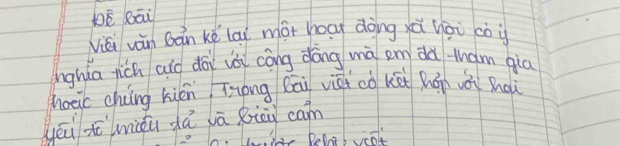 Đề bài
Viết văn bản kể lại một hoạt động xã hội có ý
nghĩa tích cực đối với cộng đồng mà em đã tham gia
hoặc chứng kiến. Trong bài viết có kết hợp với hai
yếu tố miêu tả và biểu cảm